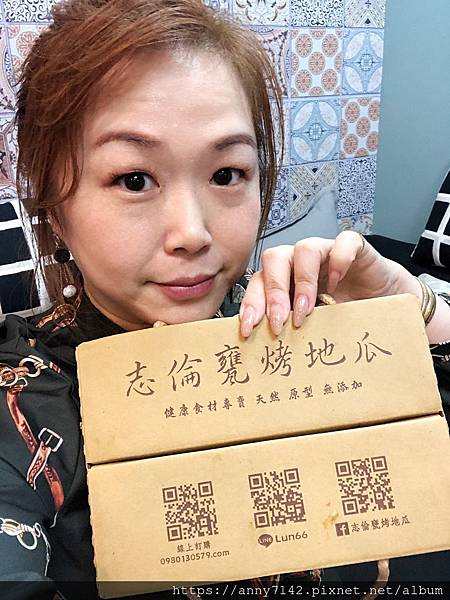 志倫甕烤地瓜
健康食材專賣 天然 原型 無添加
線上訂購
0980130579.com
LINE Lun66
f志倫甕烤地瓜
https://anny7142.pixnet.net/album